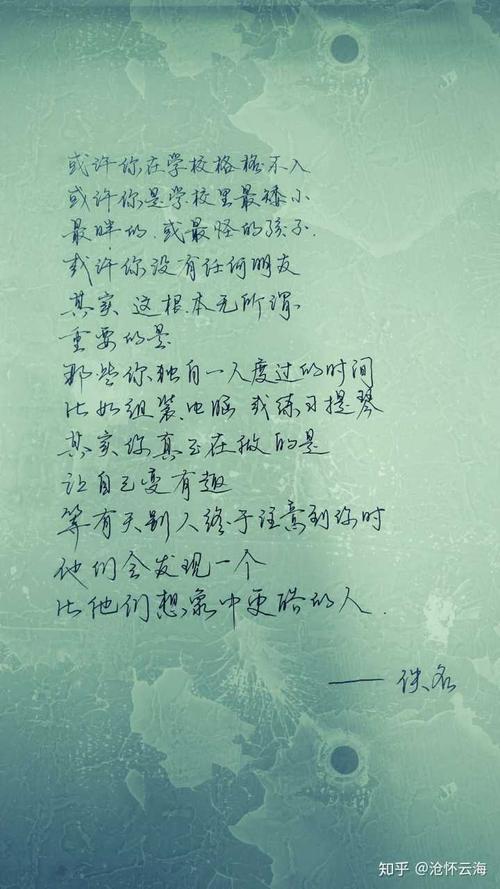 或许你在学校格格不入
或许你是学校里最矮小
最胖的.或最怪的孩子.
或许你没有任何朋友
其实 这根本无所谓
重要的是
那些你独自一人度过的时间
比如组装电脑 或练习提琴
其实你真正在做的是
让自己变有趣
等有天别人终于注意到你时
他们会发现一个
比他们想象中更酷的人.
—— 佚名
知乎 @沧怀云海